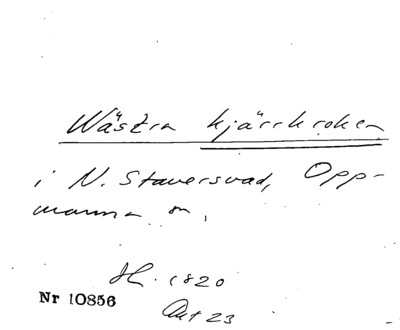 Wästra kjärrkroken
i N. Staversvad, Opp-
manna sn,
1820
Nr 10856
Akt 23